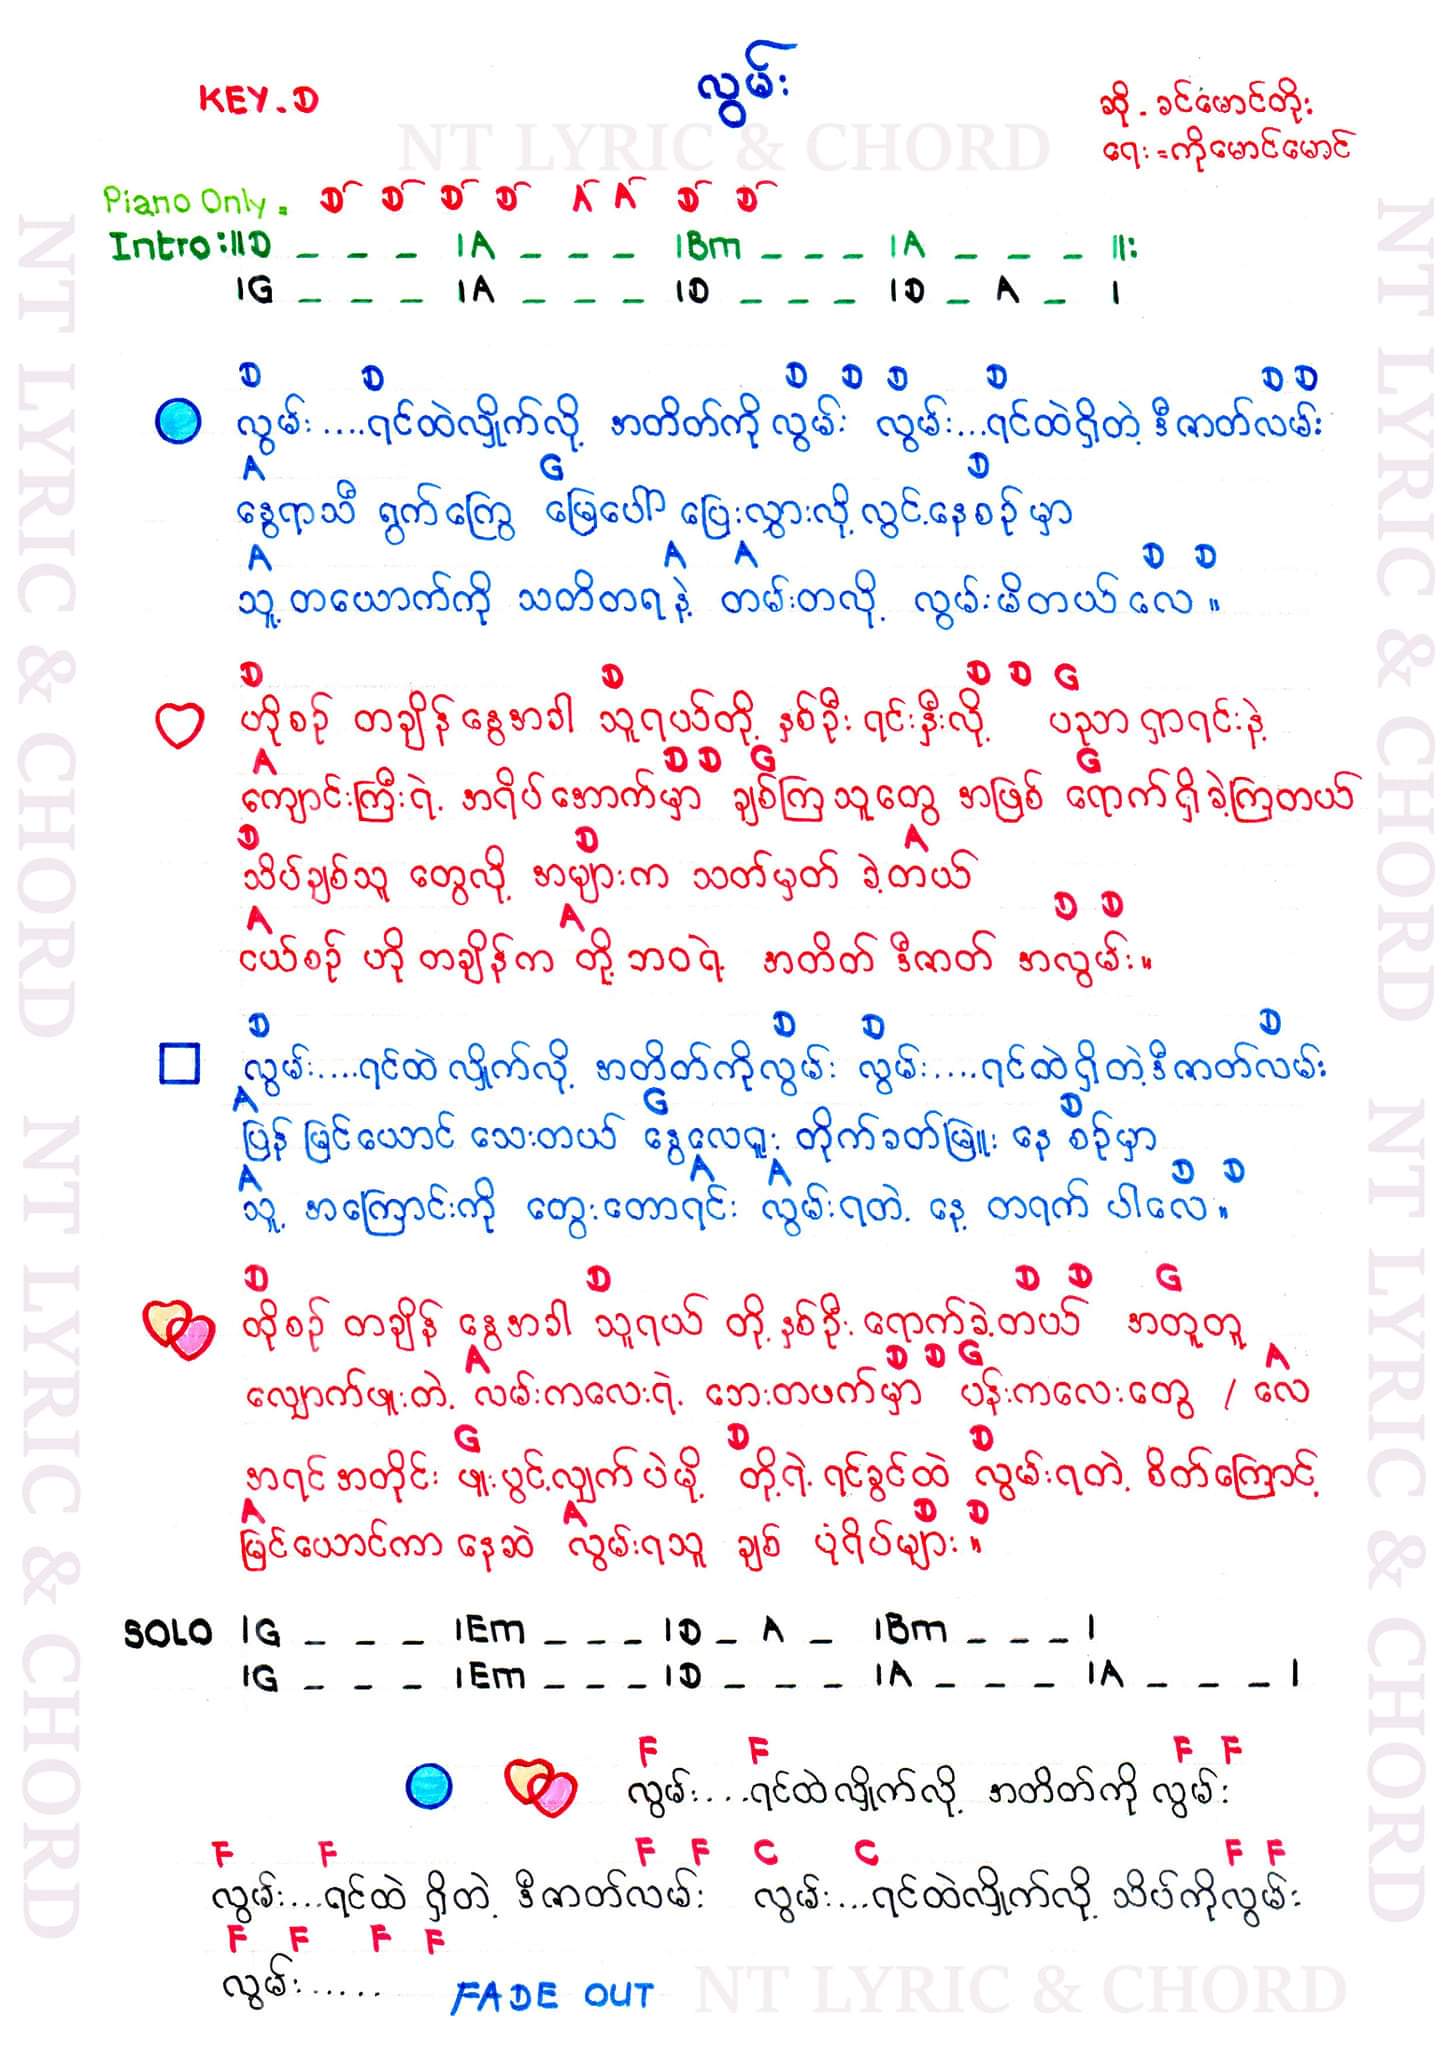 လွမ်း
KEY.D
ဆို - ခင်မောင်တိုး
ရေး = ကိုမောင်မောင်
NT LYRIC & CHORD
Piano Only = D D D D A A D D
Intro :||D _ _ _ |A _ _ _ |Bm _ _ _ |A _ _ _ ||:
|G _ _ _ |A _ _ _ |D _ _ _ |D _ A _ |
D D D D D D D D
လွမ်း....ရင်ထဲလှိုက်လို့ အတိတ်ကို လွမ်း လွမ်း...ရင်ထဲရှိတဲ့ ဒီဇာတ်လမ်း
A G D
နွေရာသီ ရွက်ကြွေ မြေပေါ် ပြေးလွှားလို့ လွင့်နေစဉ်မှာ
A A A D D
သူ့တယောက်ကို သတိတရနဲ့ တမ်းတလို့ လွမ်းမိတယ်လေ။
D D D D G
ဟိုစဉ် တချိန် နွေအခါ သူရယ်တို့ နှစ်ဦး ရင်းနှီးလို့ ပညာ ရှာရင်းနဲ့
A D D G G
ကျောင်းကြီးရဲ့ အရိပ်အောက်မှာ ချစ်ကြသူတွေ အဖြစ် ရောက်ရှိခဲ့ကြတယ်
D D A
သိပ်ချစ်သူ တွေလို့ အများက သတ်မှတ် ခဲ့တယ်
A A D D
ငယ်စဉ် ဟို တချိန်က တို့ဘဝရဲ့ အတိတ် ဒီဇာတ် အလွမ်း။
D D D D
လွမ်း....ရင်ထဲ လှိုက်လို့ အတိတ်ကိုလွမ်း လွမ်း....ရင်ထဲရှိတဲ့ဒီဇာတ်လမ်း
A G D
ပြန် မြင်ယောင် သေးတယ် နွေလေရူး တိုက်ခတ်မြူး နေ စဉ်မှာ
A A A D D
သူ့ အကြောင်းကို တွေးတောရင်း လွမ်းရတဲ့ နေ့ တရက် ပါလေ။
D D D D G
ထိုစဉ် တချိန် နွေအခါ သူရယ် တို့နှစ်ဦး ရောက်ခဲ့တယ် အတူတူ
A D D G A
လျှောက်ဖူးတဲ့ လမ်းကလေးရဲ့ ဘေးတဖက်မှာ ပန်းကလေးတွေ / လေ
G D D
အရင်အတိုင်း ဖူးပွင့်လျှက်ပဲမို့ တို့ရဲ့ ရင်ခွင်ထဲ လွမ်းရတဲ့ စိတ်ကြောင့်
A A D D
မြင်ယောင်ကာ နေဆဲ လွမ်းရသူ ချစ် ပုံရိပ်များ။
SOLO |G _ _ _ |Em _ _ _ |D _ A _ |Bm _ _ _ |
|G _ _ _ |Em _ _ _ |D _ _ _ |A _ _ _ |A _ _ _ |
F F F F
လွမ်း....ရင်ထဲလှိုက်လို့ အတိတ်ကို လွမ်း
F F F F C C F F
လွမ်း...ရင်ထဲ ရှိတဲ့ ဒီဇာတ်လမ်း လွမ်း...ရင်ထဲလှိုက်လို့ သိပ်ကိုလွမ်း
F F F F
လွမ်း......
FADE OUT
NT LYRIC & CHORD
NT LYRIC & CHORD NT LYRIC & CHORD
NT LYRIC & CHORD NT LYRIC & CHORD